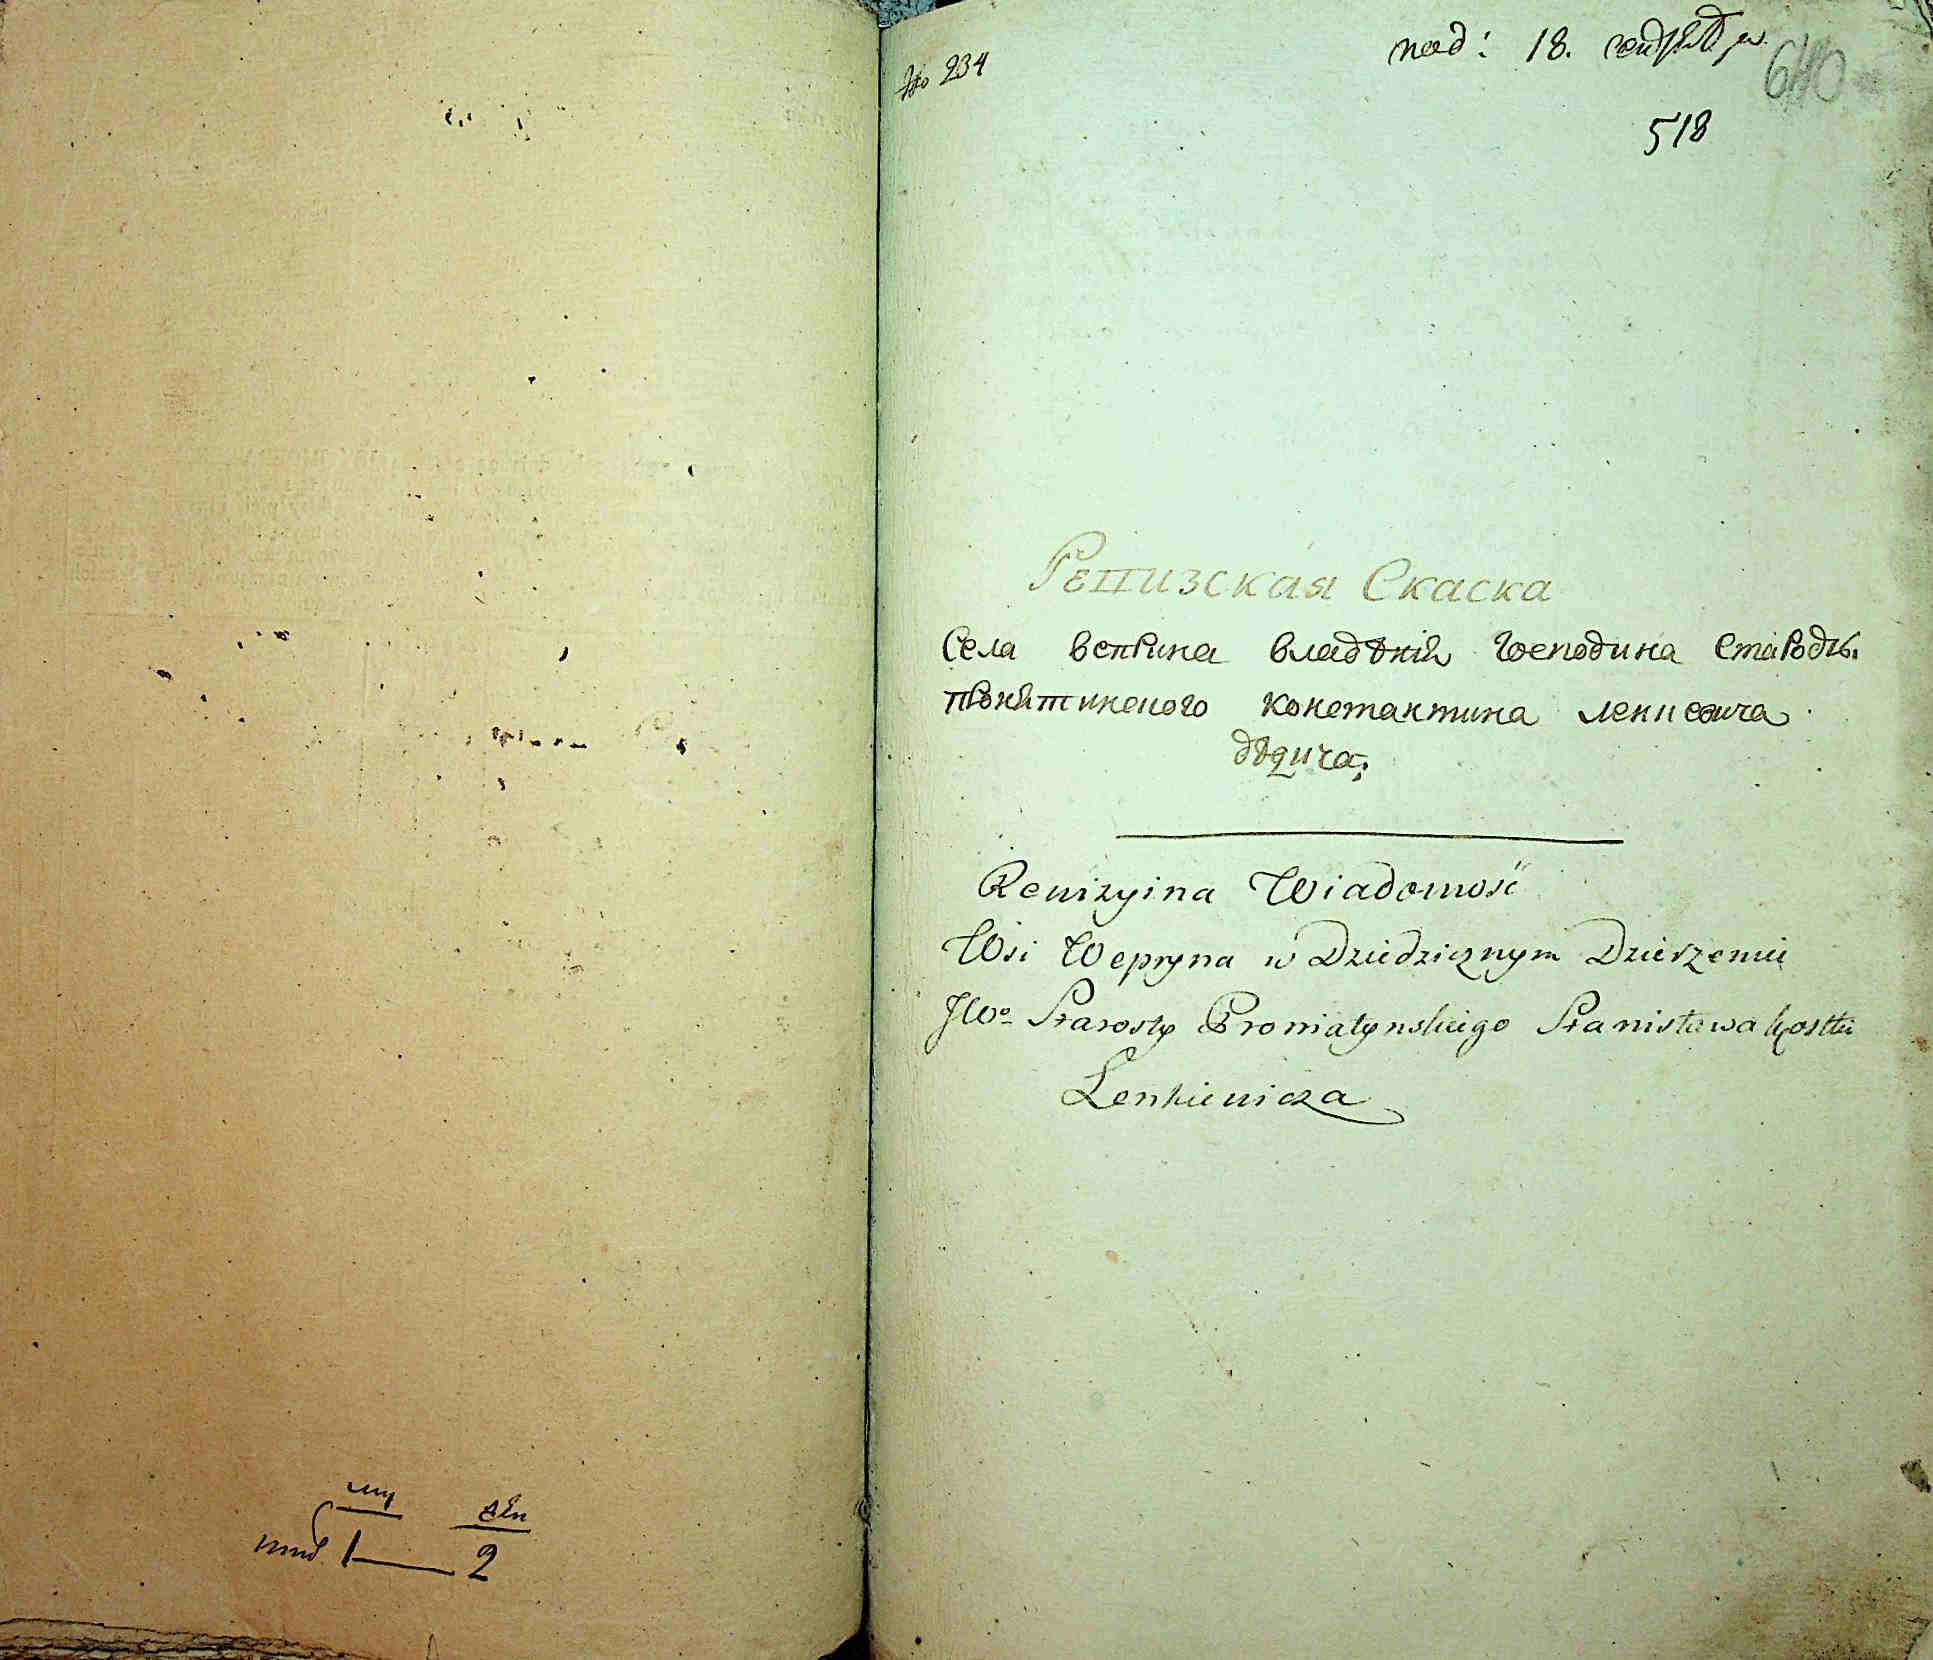 муж жен
1 — 2
No 234
под: 18. сентября
640
518
Ревизская Скаска
Села вепрына владѣнїя господина Старосты
пронятинского константина ленкевича
дѣдича;
Rewizyina Wiadomość
Wsi Wepryna w Dziedzicznym Dzierżeniu
JWo Starosty Proniatynskiego Stanisława Kostki
Lenkiewicza